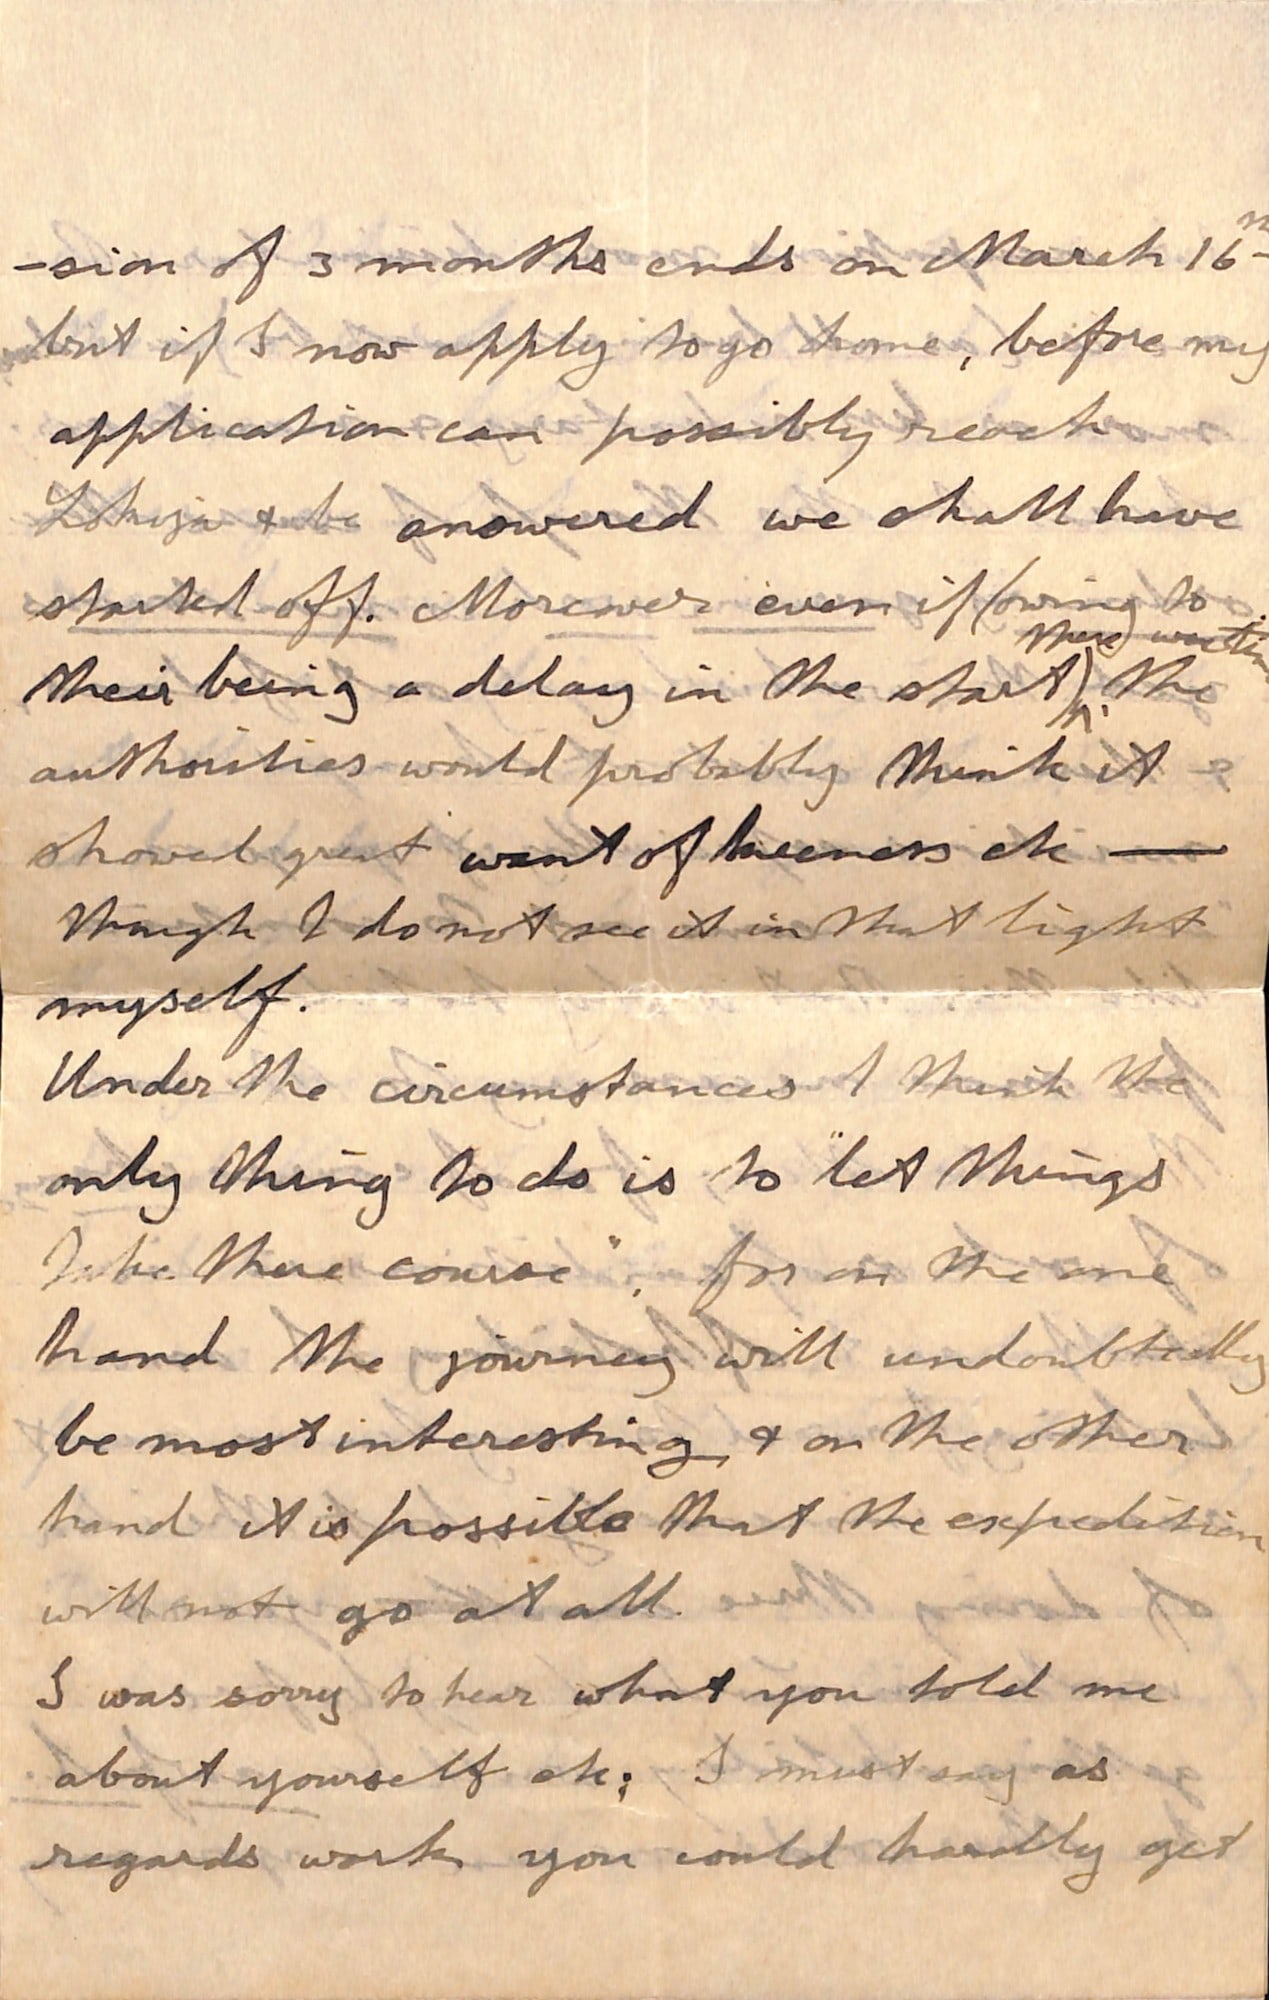 -sion of 3 months ends on March 16th
but if I now apply to go home, before my
application can possibly reach
Lokoja & be answered we shall have
started off. Moreover even if (owing to
there
their being a delay in the start) the
authorities would probably think it
showed great want of keeness etc —
though I do not see it in that light
myself.
Under the circumstances I think the
only thing to do is to "let things
take there course", for on the one
hand the journey will undoubtedly
be most interesting, & on the other
hand it is possible that the expedition
will not go at all.
I was sorry to hear what you told me
about yourself etc; I must say as
regards work you could hardly get